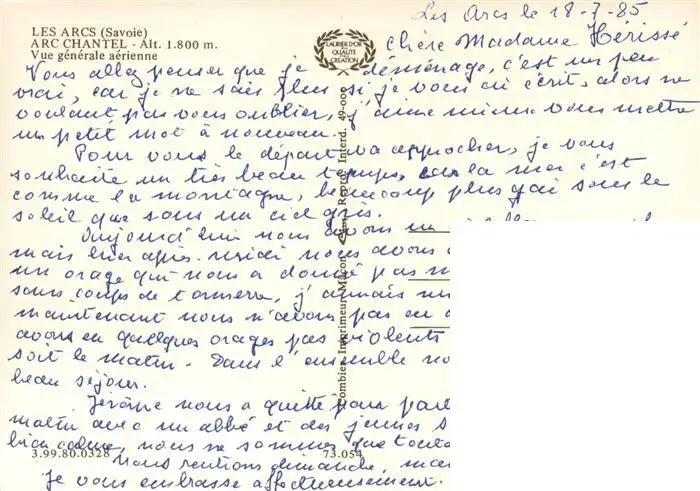 LES ARCS (Savoie)
ARC CHANTEL - Alt. 1.800 m.
Vue générale aérienne
LAURIER D'OR
DE LA
QUALITÉ
CRÉATION
Les Arcs le 18-7-85
Chère Madame Hérissé
Vous allez penser que je déménage, c'est un peu
vrai, car je ne sais plus si je vous ai écrit, alors ne
voulant pas vous oublier, j'aime mieux vous mettre
un petit mot à nouveau.
Pour vous le départ va approcher, je vous
souhaite un très beau temps, car la mer c'est
comme la montagne, beaucoup plus gai sous le
soleil que sous un ciel gris.
Aujourd'hui nous avons un
mais hier après-midi nous avons
un orage qui nous a donné pas m
sous coups de tonnerre, j'aimais
maintenant nous n'avons pas eu
avons eu quelques orages pas violents
soit le matin. Dans l'ensemble
beau séjour.
Jérôme nous a quitté pour
matin avec un abbé et des jeunes
bien calme, nous ne sommes que
Nous rentrons dimanche,
Je vous embrasse affectueusement.
Combier Imprimeur Mâcon
Reprod. Interd. 49-000
3.99.80.0328
73.054